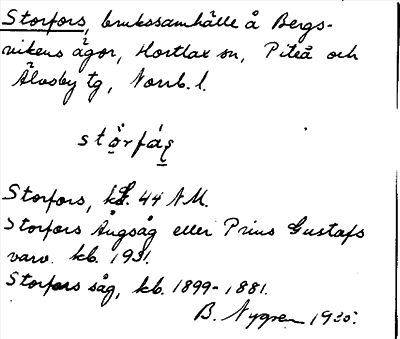 Storfors, brukssamhälle å Bergs-
vikens ägor, Hortlax sn, Piteå och
Älvsby tg, Norrb. l.
Storfors, kbl. 44 N.M.
Storfors Ångsåg eller Prins Gustafs
varv. kb. 1931.
Storfors såg, kb. 1899-1881.
B. Nygren 1935.